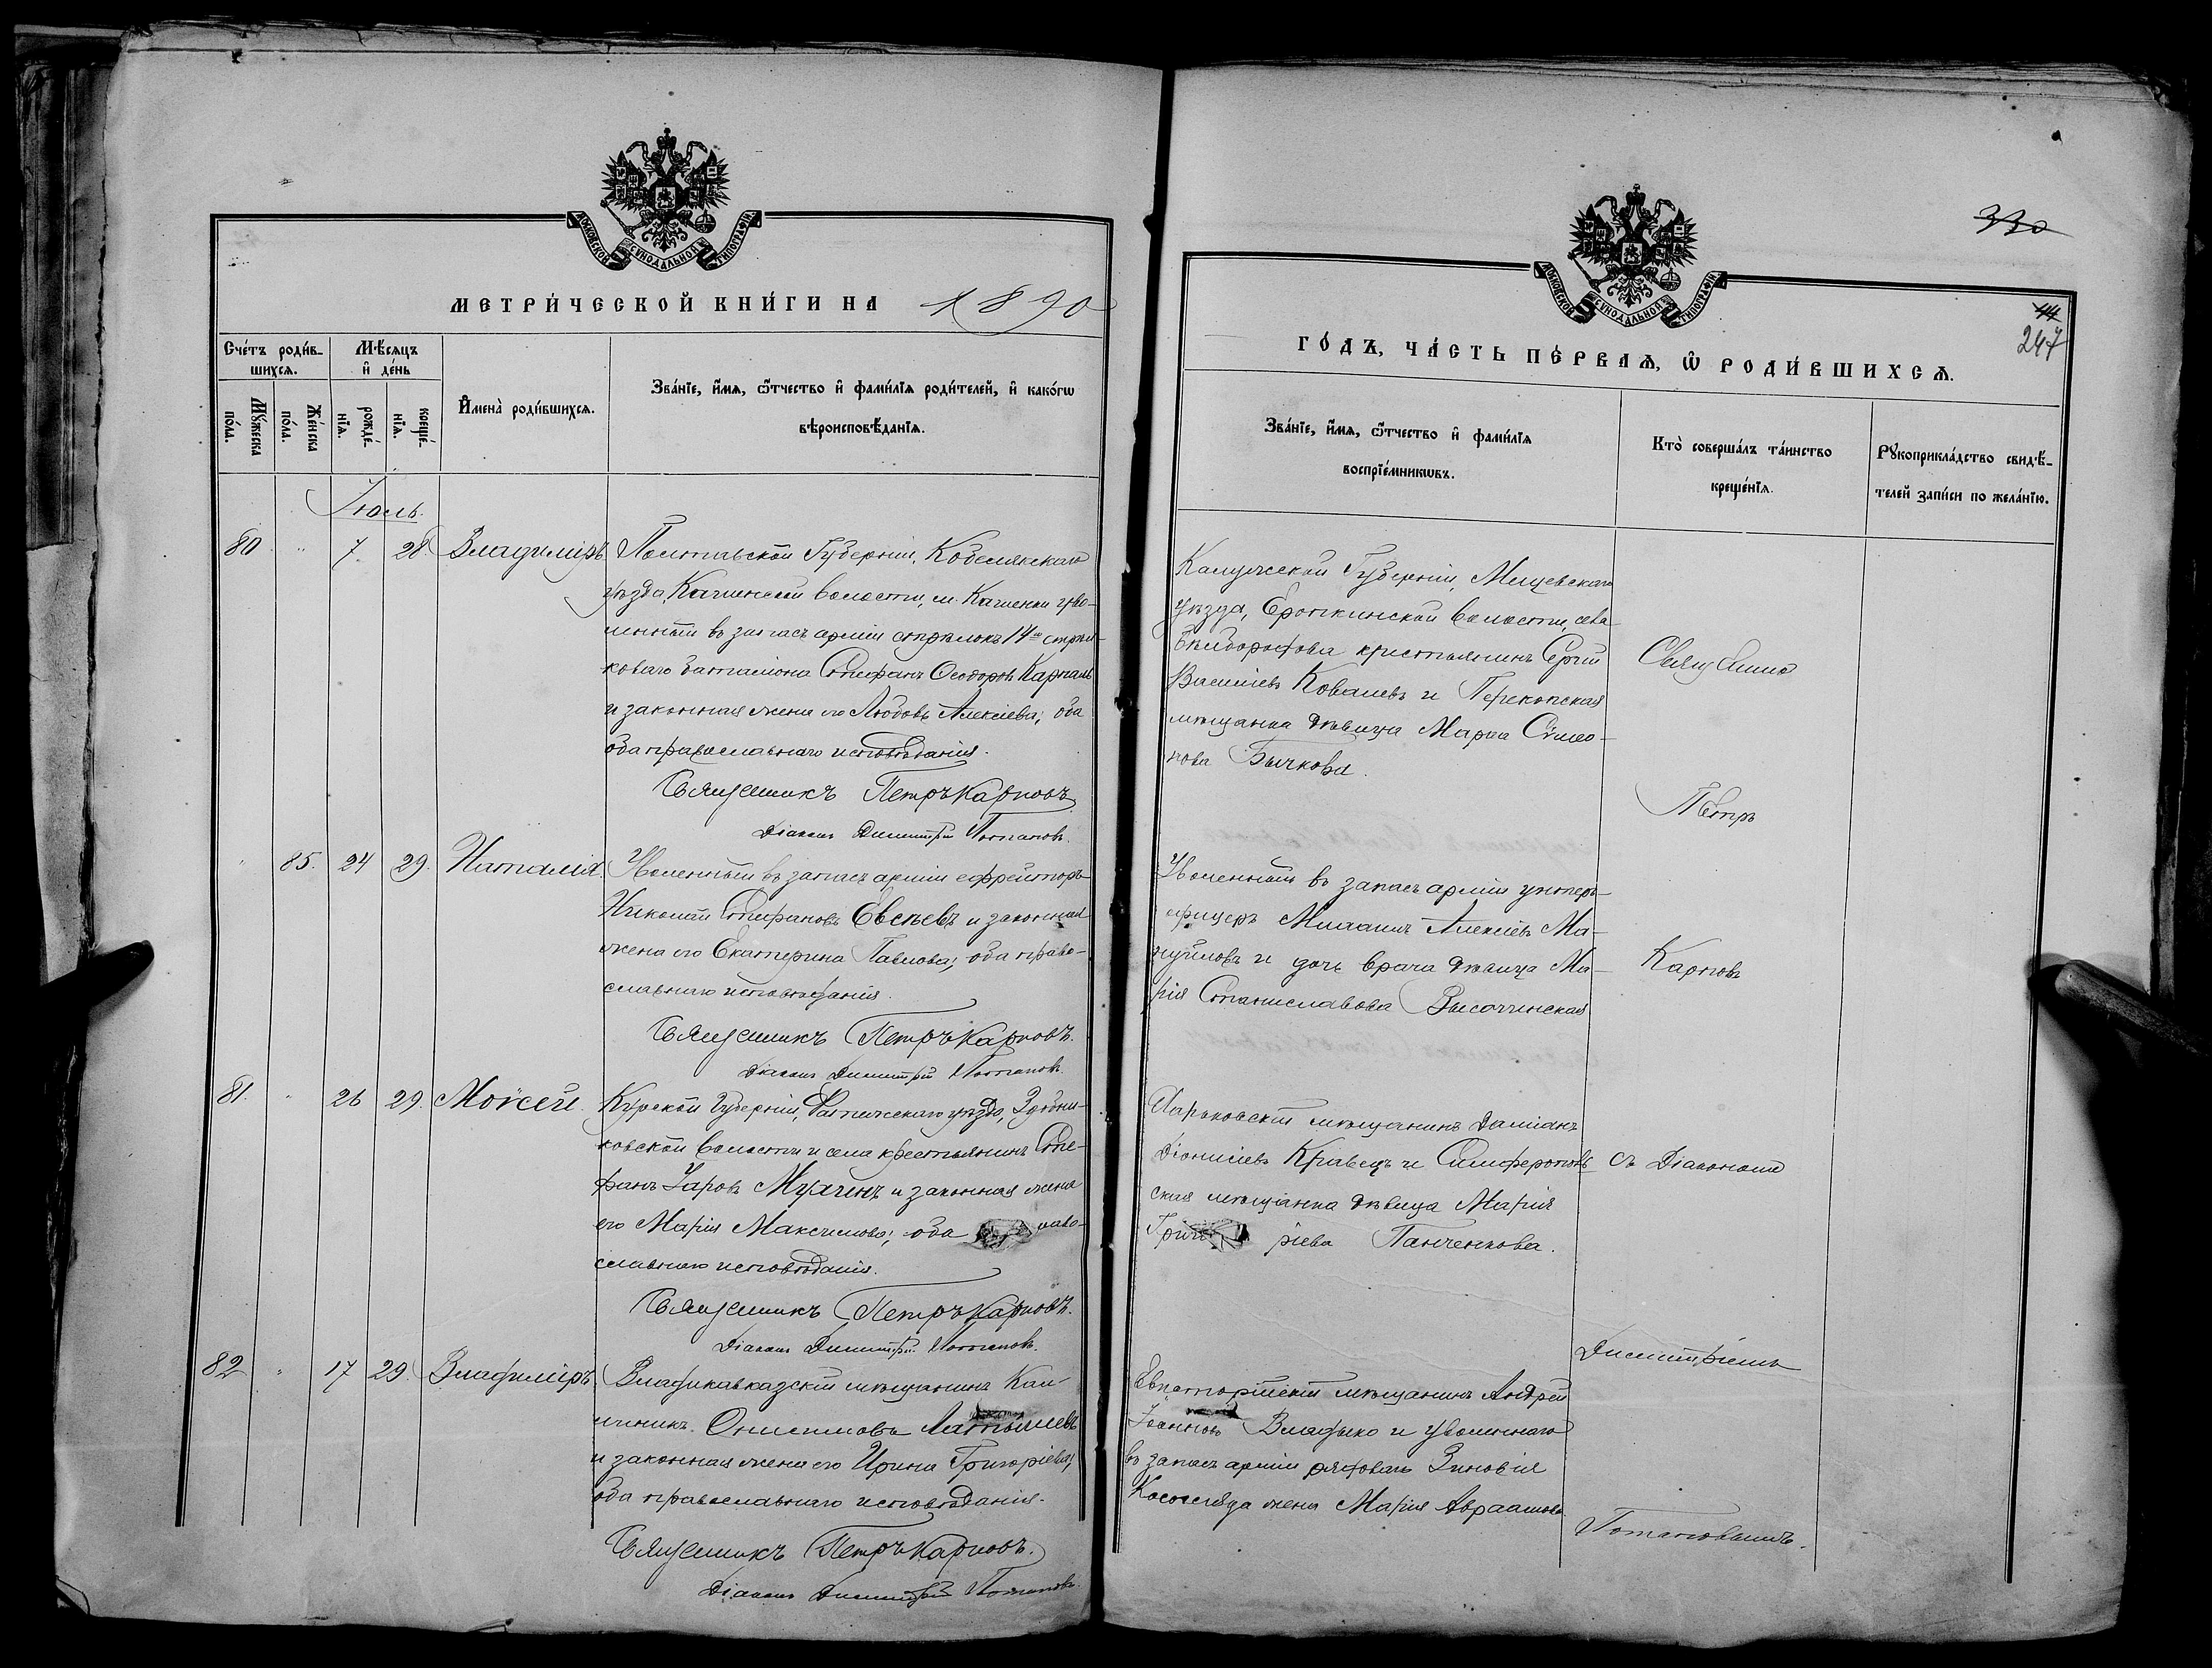 МОСКОВСКОЙ СУНОДАЛЬНОЙ ТИПОГРАФІИ
МЕТРИ́ЧЕСКОЙ КНИ́ГИ НА 1890
Сче́тъ роди́в-
шихсѧ.
Мѣ́сѧцъ
и҆ де́нь
Мꙋ́жеска
по́ла.
Же́нска
по́ла.
рожде́-
нїѧ.
креще́-
нїѧ.
И҆мена̀ роди́вшихсѧ.
Зва́нїе, и҆́мѧ, ѻ҆́тчество и҆ фами́лїѧ роди́телей, и҆ како́гѡ
вѣроисповѣ́данїѧ.
Іюль.
80 " 7. 28. Владиміръ. Полтавской Губерніи, Кобелякскаго
уѣзда, Кашенской волости, м. Кашенки уво-
ленный въ запасъ арміи стрѣлокъ 14го стрѣл-
коваго баталіона Стефанъ Ѳеодоровъ Карпаль
и законная жена его Любовь Алексіева; оба
оба православнаго исповѣданія.
Священникъ Петръ Карповъ.
Діаконъ Димитрій Потаповъ.
" 85. 24 29. Наталія. Уволенный въ запасъ арміи ефрейторъ
Николай Стефановъ Евсѣевъ и законная
жена его Екатерина Павлова; оба право-
славнаго исповѣданія.
Священникъ Петръ Карповъ.
Діаконъ Димитрій Потаповъ.
81. " 26 29. Моѵсей. Курской Губерніи, Фатежскаго уѣзда,
ковской волости и села крестьянинъ Сте-
фанъ Уаровъ Мухинъ и законная жена
его Марія Максимова; оба право-
славнаго исповѣданія.
Священникъ Петръ Карповъ.
Діаконъ Димитрій Потаповъ.
82 " 17 29. Владиміръ. Владикавказскій мѣщанинъ Кал-
линикъ Онисимовъ Латышевъ
и законная жена его Ирина Григоріева;
оба православнаго исповѣданія.
Священникъ Петръ Карповъ.
Діаконъ Димитрій Потаповъ.
330
МОСКОВСКОЙ СУНОДАЛЬНОЙ ТИПОГРАФІИ
44
247
ГО́ДЪ, ЧА́СТЬ ПЕ́РВАѦ, Ѡ҆ РОДИ́ВШИХСѦ.
Зва́нїе, и҆́мѧ, ѻ҆́тчество и҆ фами́лїѧ
воспрїе́мникѡвъ.
Кто̀ соверша́лъ та́инство
креще́нїѧ.
Рꙋкоприкла́дство свидѣ́-
телей за́писи по жела́нїю.
Калужской Губерніи, Мещевскаго
уѣзда, Еропкинской волости, села
крестьянинъ Сергій
Василіевъ Ковалевъ и Перекопская
мѣщанка дѣвица Марѳа Сѵмео-
нова Бычкова.
Священникъ
Петръ
Уволенный въ запасъ арміи унтеръ-
офицеръ Михаилъ Алексіевъ Ма-
нуйловъ и дочь врача дѣвица Ма-
рія Станиславова Высочинская
Карповъ
Харьковскій мѣщанинъ Даміанъ
Діонисіевъ Кравецъ и Симферополь-
ская мѣщанка дѣвица Марія
Григоріева Панченкова.
съ Діакономъ
Димитріемъ
Евпаторійскій мѣщанинъ Андрей
Іоанновъ Владыко и уволеннаго
въ запасъ арміи рядоваго Зиновія
жена Марія Авраамова.
Потаповымъ.